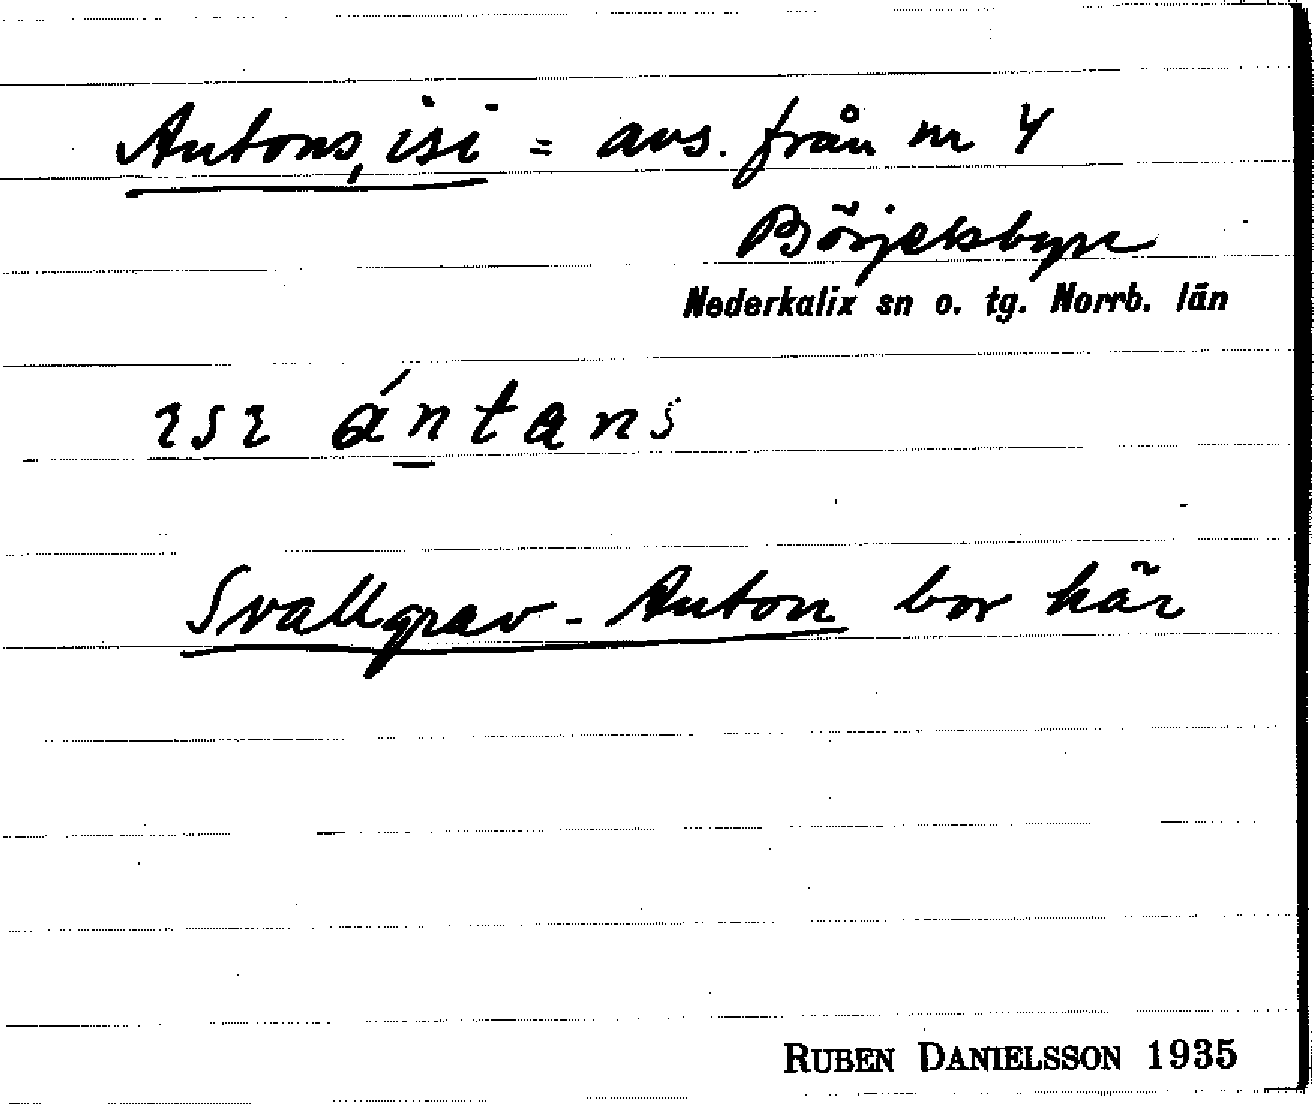 Antons, isi = avs. från nr 4
Börjelsbyn
Nederkalix sn o. tg. Norrb. län
ɩsɩ ántans
Svallgrav-Anton bor här
RUBEN DANIELSSON 1935